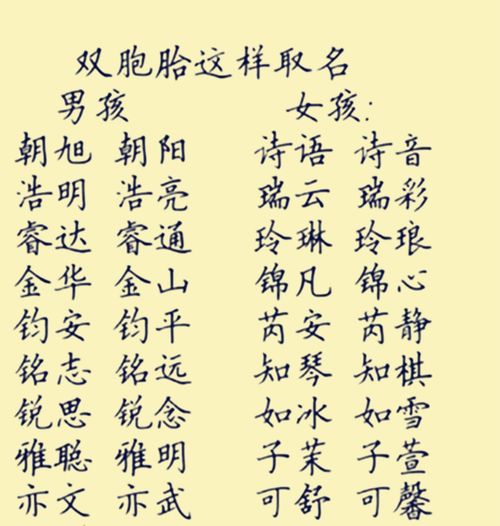 双胞胎这样取名
男孩 女孩:
朝旭 朝阳 诗语 诗音
浩明 浩亮 瑞云 瑞彩
睿达 睿通 玲琳 玲琅
金华 金山 锦凡 锦心
钧安 钧平 芮安 芮静
铭志 铭远 知琴 知棋
锐思 锐念 如冰 如雪
雅聪 雅明 子茉 子萱
亦文 亦武 可舒 可馨